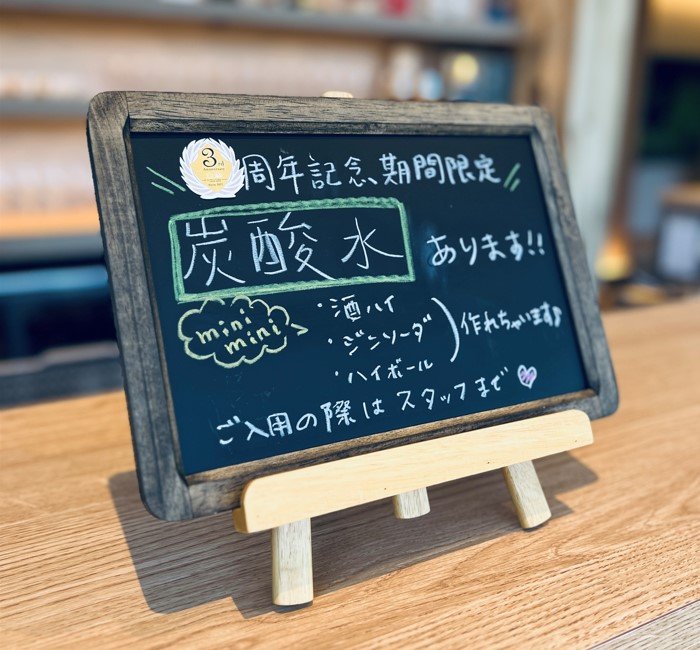 3rd
Anniversary
周年記念、期間限定
炭酸水 あります!!
mini mini
・酒ハイ
・ジンソーダ
・ハイボール
作れちゃいます♪
ご入用の際は スタッフまで